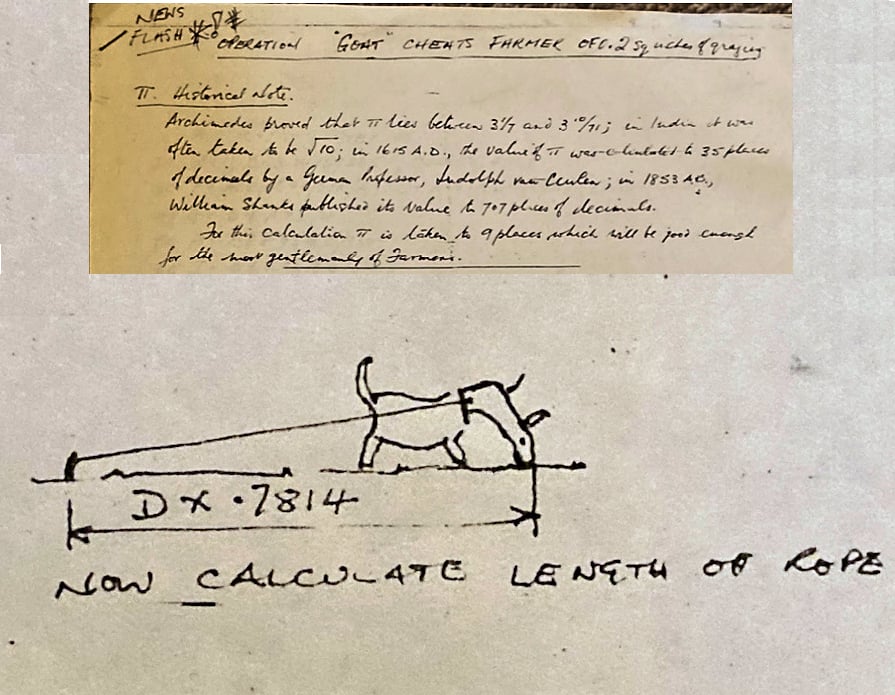 NEWS
FLASH
OPERATION "GOAT" CHEATS FARMER OF 0.2 sq inches of grazing
π. Historical Note.
Archimedes proved that π lies between 3 1/7 and 3 10/71; in India it was
often taken to be √10; in 1615 A.D., the value of π was calculated to 35 places
of decimals by a German Professor, Ludolph van Ceulen; in 1853 A.D.,
William Shanks published its value to 707 places of decimals.
For this calculation π is taken to 9 places which will be good enough
for the most gentlemanly of Farmers.
D × .7814
NOW CALCULATE LENGTH OF ROPE